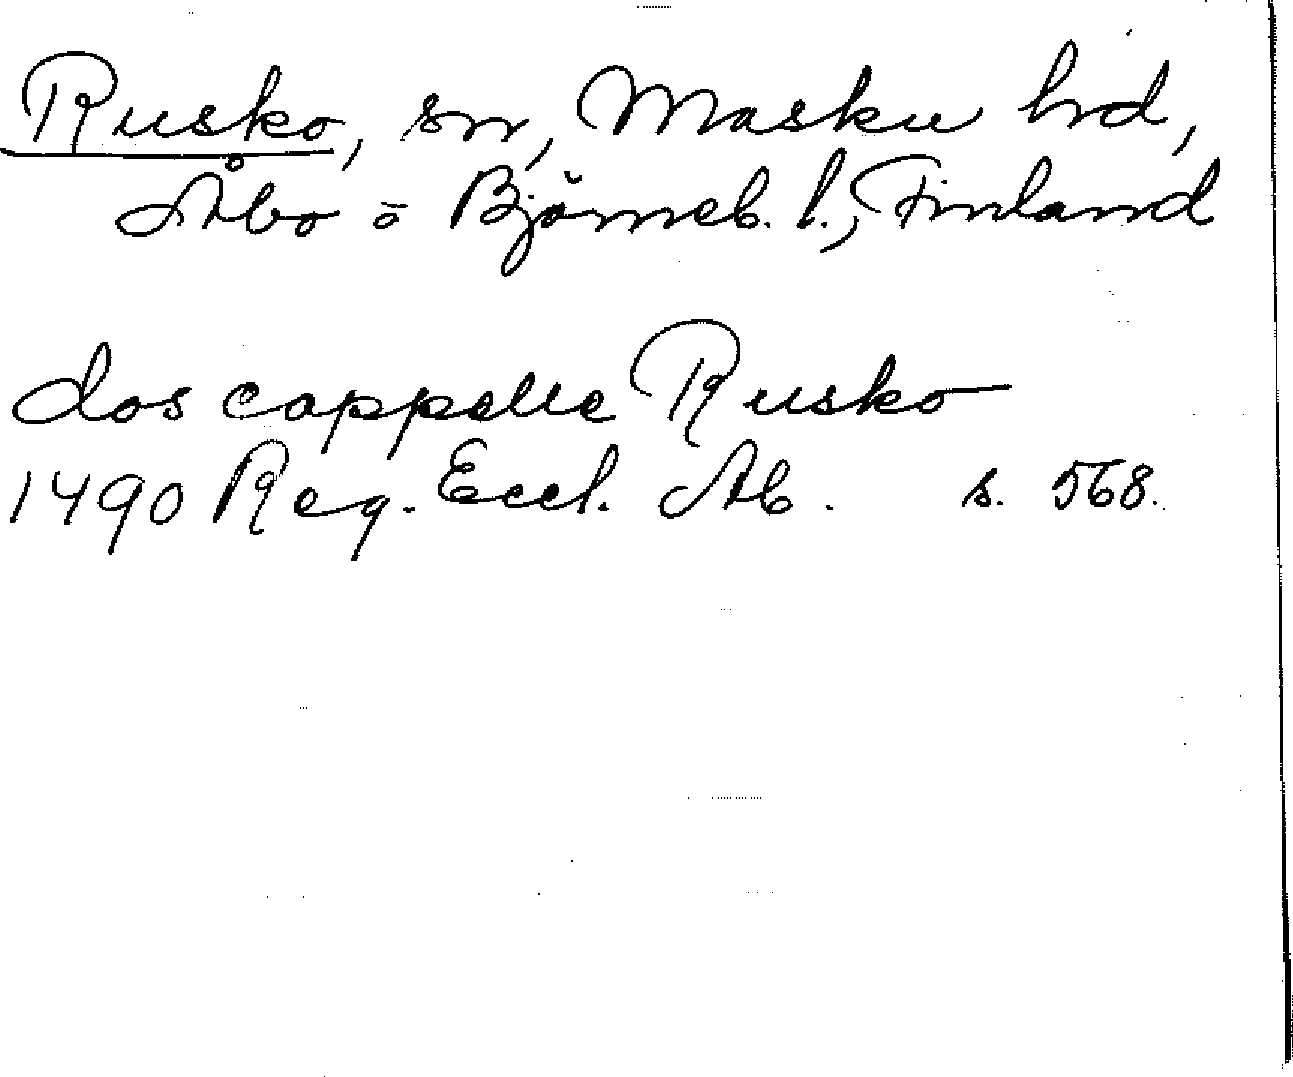 Rusko, sn, Masku hrd,
Åbo o Björneb. l., Finland
dos cappelle Rusko
1490 Reg. Eccl. Ab. s. 568.